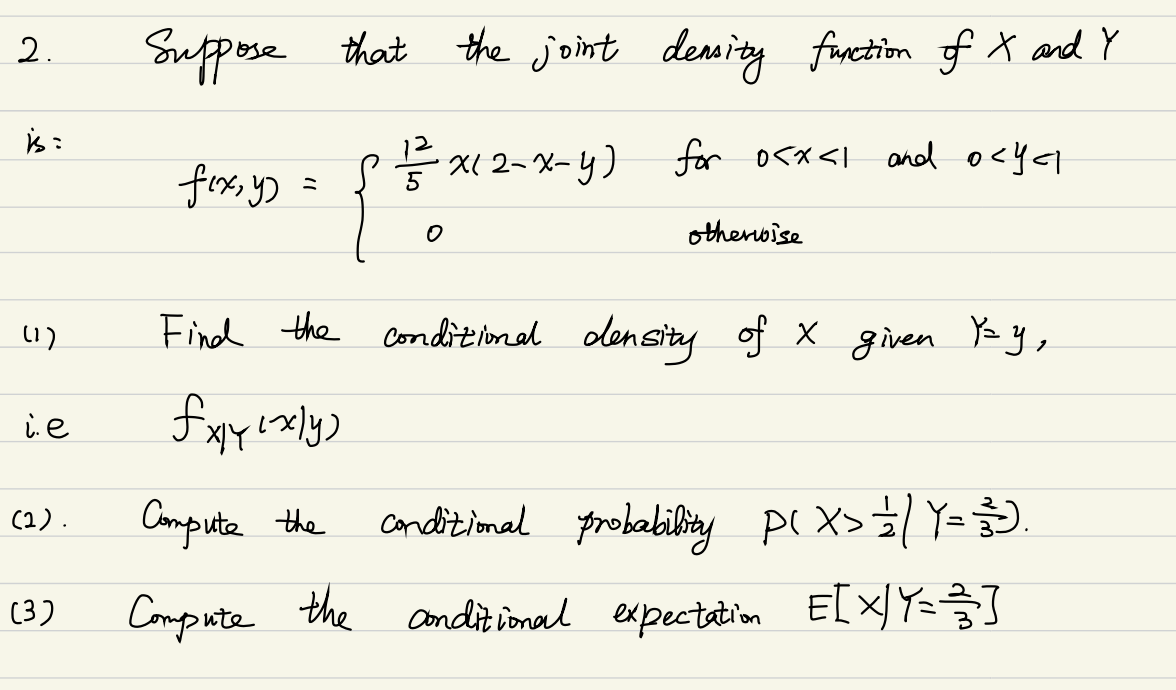 2. Suppose that the joint density function of X and Y
is:
f(x,y) = { 12/5 x(2-x-y) for 0<x<1 and 0<y<1
0 otherwise
(1) Find the conditional density of X given Y=y,
i.e f_{X|Y}(x|y)
(2). Compute the conditional probability P(X>1/2|Y=2/3).
(3) Compute the conditional expectation E[X|Y=2/3]